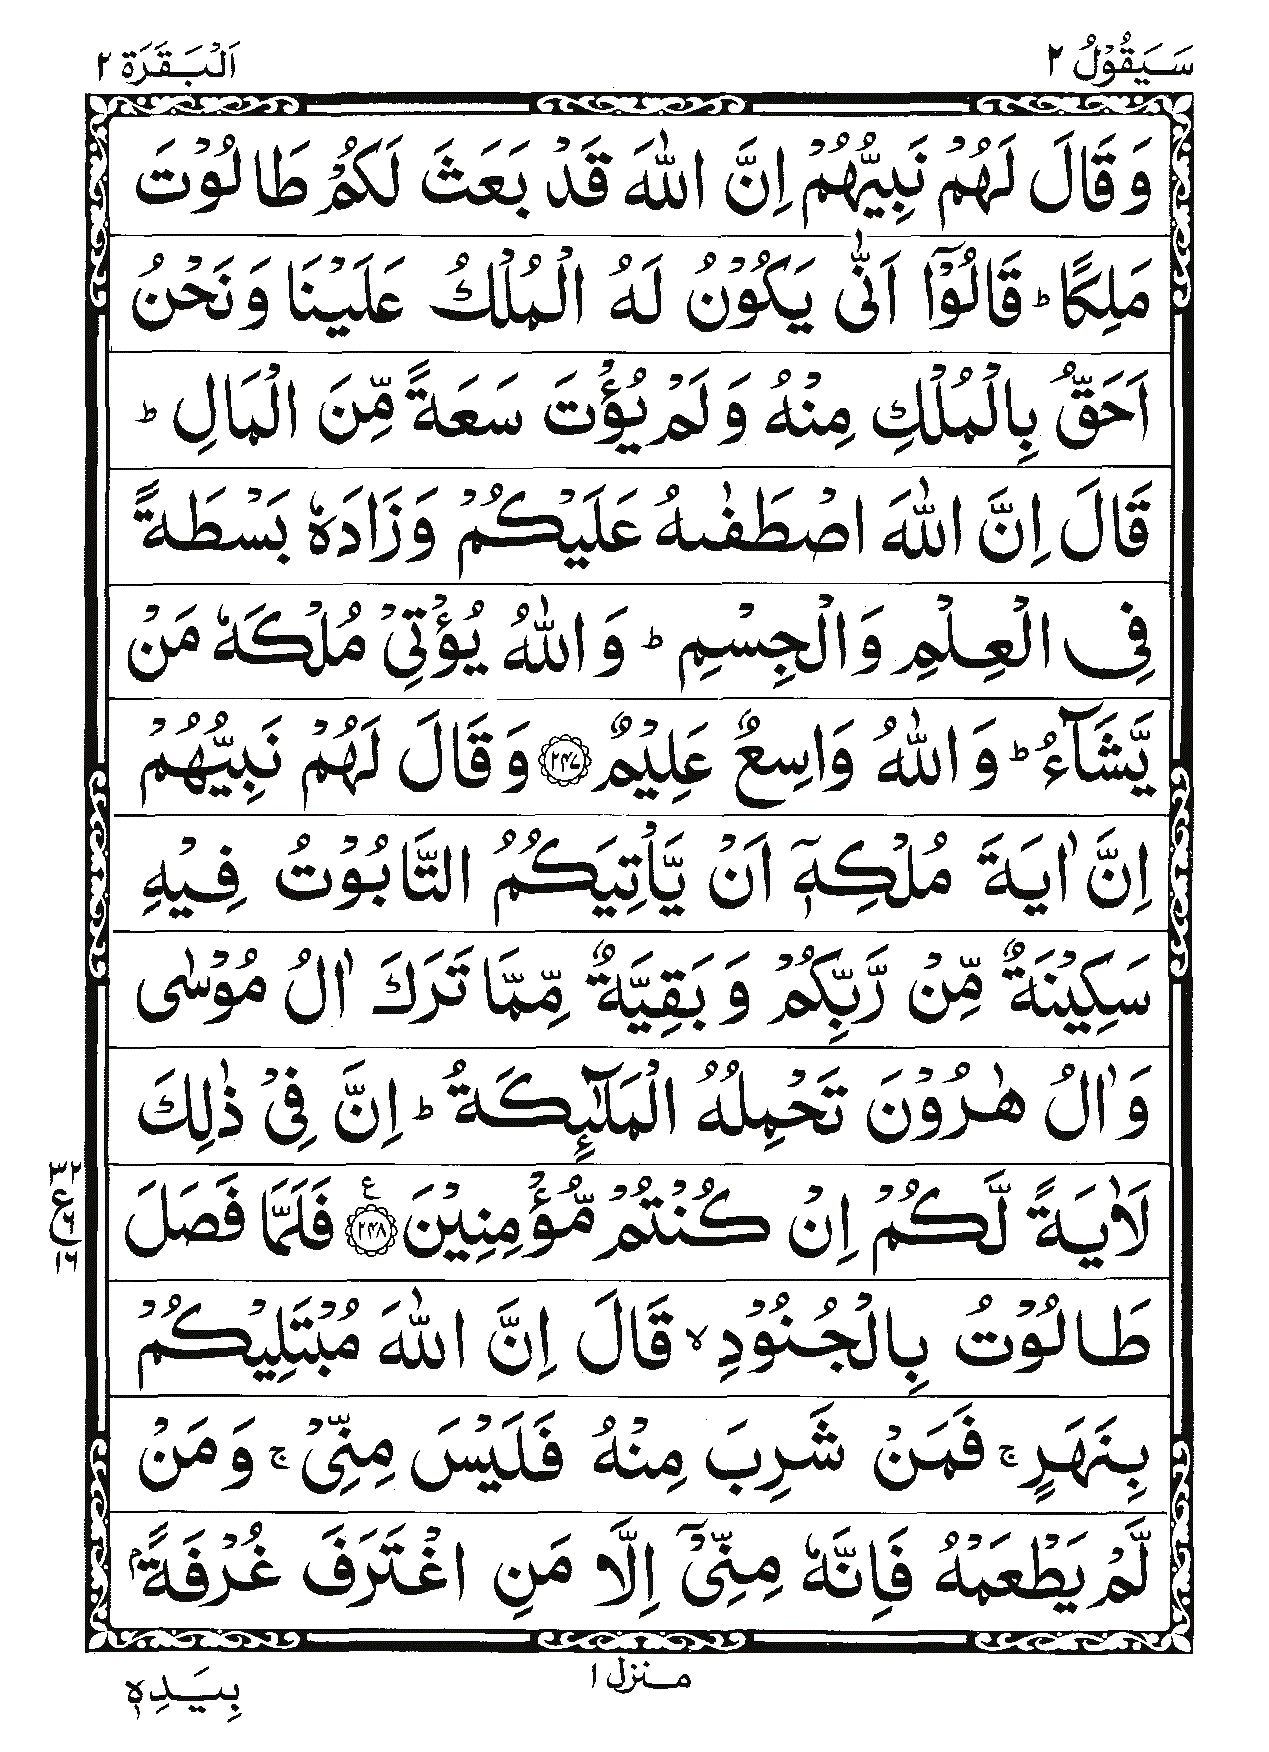 سَيَقُوْلُ ٢
اَلْبَقَرَة ٢
وَقَالَ لَهُمْ نَبِيُّهُمْ اِنَّ اللّٰهَ قَدْ بَعَثَ لَكُمْ طَالُوْتَ
مَلِكًا ؕ قَالُوْۤا اَنّٰى يَكُوْنُ لَهُ الْمُلْكُ عَلَيْنَا وَنَحْنُ
اَحَقُّ بِالْمُلْكِ مِنْهُ وَلَمْ يُؤْتَ سَعَةً مِّنَ الْمَالِ ؕ
قَالَ اِنَّ اللّٰهَ اصْطَفٰىهُ عَلَيْكُمْ وَزَادَهٗ بَسْطَةً
فِي الْعِلْمِ وَالْجِسْمِ ؕ وَاللّٰهُ يُؤْتِيْ مُلْكَهٗ مَنْ
يَّشَآءُ ؕ وَاللّٰهُ وَاسِعٌ عَلِيْمٌ ﴿٢٤٧﴾ وَقَالَ لَهُمْ نَبِيُّهُمْ
اِنَّ اٰيَةَ مُلْكِهٖۤ اَنْ يَّأْتِيَكُمُ التَّابُوْتُ فِيْهِ
سَكِيْنَةٌ مِّنْ رَّبِّكُمْ وَبَقِيَّةٌ مِّمَّا تَرَكَ اٰلُ مُوْسٰى
وَاٰلُ هٰرُوْنَ تَحْمِلُهُ الْمَلٰٓئِكَةُ ؕ اِنَّ فِيْ ذٰلِكَ
لَاٰيَةً لَّكُمْ اِنْ كُنْتُمْ مُّؤْمِنِيْنَ ﴿٢٤٨﴾ ع فَلَمَّا فَصَلَ
٣٢ ع ٦ ١٦
طَالُوْتُ بِالْجُنُوْدِ ۙ قَالَ اِنَّ اللّٰهَ مُبْتَلِيْكُمْ
بِنَهَرٍ ۚ فَمَنْ شَرِبَ مِنْهُ فَلَيْسَ مِنِّيْ ۚ وَمَنْ
لَّمْ يَطْعَمْهُ فَاِنَّهٗ مِنِّيْۤ اِلَّا مَنِ اغْتَرَفَ غُرْفَةًۢ
منزل ١
بِيَدِهٖ